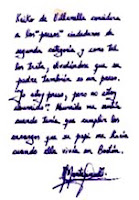 Keiko de Villanella considera
a los "pesos" ciudadanos de
segunda categoría y como tal
los trata, olvidándose que su
padre también es un preso.
Yo estoy preso, pero no estoy
aburrido. Aburrido me sentía
cuando tenía que cumplir los
encargos que su papi me hacía
cuando ella vivía en Boston.
Montesinos